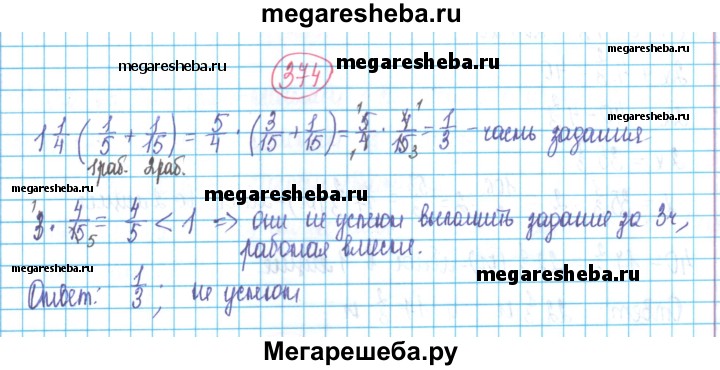 megaresheba.ru
374
megaresheba.ru
megaresheba.ru
megaresheba.ru
1 1/4 (1/5 + 1/15) = 5/4 · (3/15 + 1/15) = 5/4 · 4/15 = 1/3 - часть задания
1раб. 2раб.
megaresheba.ru
3 · 4/15 = 4/5 < 1 => они не успеют выполнить задание за 3ч,
работая вместе.
megaresheba.ru
megaresheba.ru
Ответ: 1/3; не успеют
Мегарешеба.ру